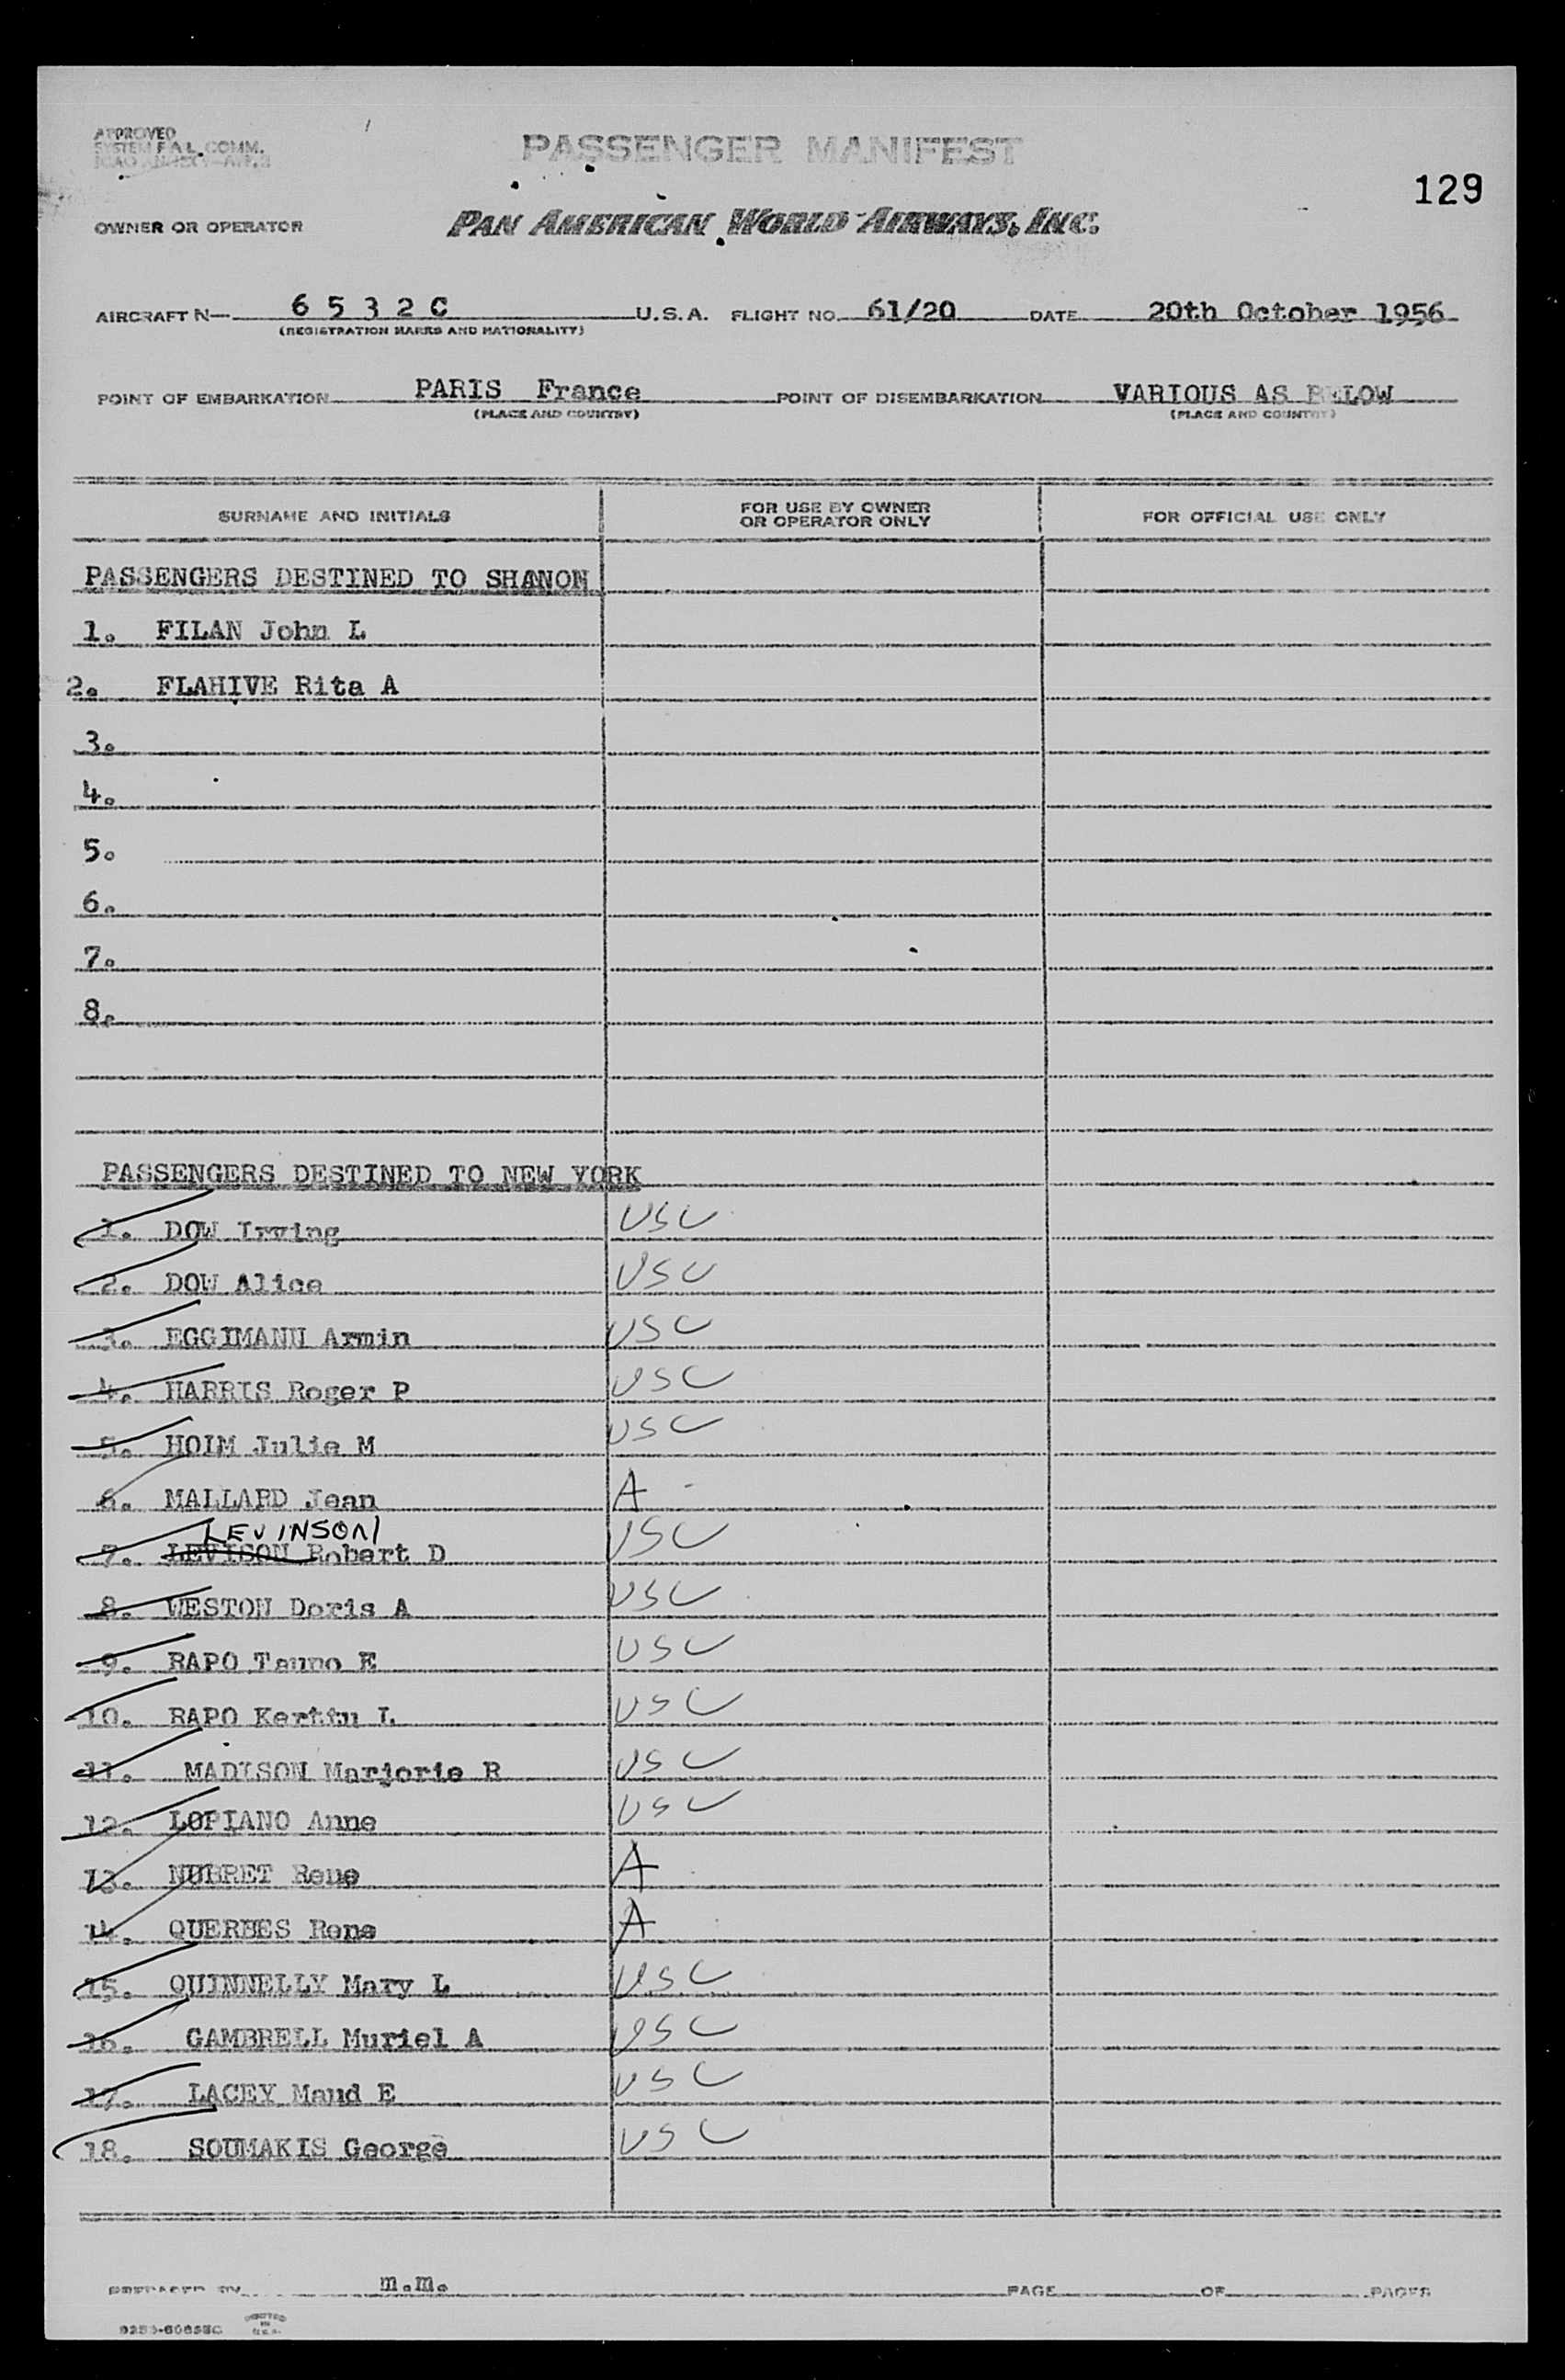 APPROVED
SYSTEM F.A.L. COMM.
PASSENGER MANIFEST
129
OWNER OR OPERATOR
PAN AMERICAN WORLD AIRWAYS, INC.
AIRCRAFT N— 6 5 3 2 C U.S.A. FLIGHT NO. 61/20 DATE 20th October 1956
(REGISTRATION MARKS AND NATIONALITY)
POINT OF EMBARKATION PARIS France POINT OF DISEMBARKATION VARIOUS AS BELOW
(PLACE AND COUNTRY) (PLACE AND COUNTRY)
SURNAME AND INITIALS FOR USE BY OWNER OR OPERATOR ONLY FOR OFFICIAL USE ONLY
PASSENGERS DESTINED TO SHANON
1. FILAN John L
2. FLAHIVE Rita A
3.
4.
5.
6.
7.
8.
PASSENGERS DESTINED TO NEW YORK
1. DOW Irving USC
2. DOW Alice USC
3. EGGIMANN Armin USC
4. HARRIS Roger P USC
5. HOIM Julie M USC
6. MALLARD Jean A
LEVINSON
7. LEVISON Robert D USC
8. WESTON Doris A USC
9. RAPO Tauno E USC
10. RAPO Kerttu L USC
11. MADISON Marjorie R USC
12. LOPIANO Anne USC
13. NUBRET Rene A
14. QUERBES Rene A
15. QUINNELLY Mary L USC
16. GAMBRELL Muriel A USC
17. LACEY Maud E USC
18. SOUMAKIS George USC
PREPARED BY m.m. PAGE OF PAGES
PRINTED
IN
U.S.A.